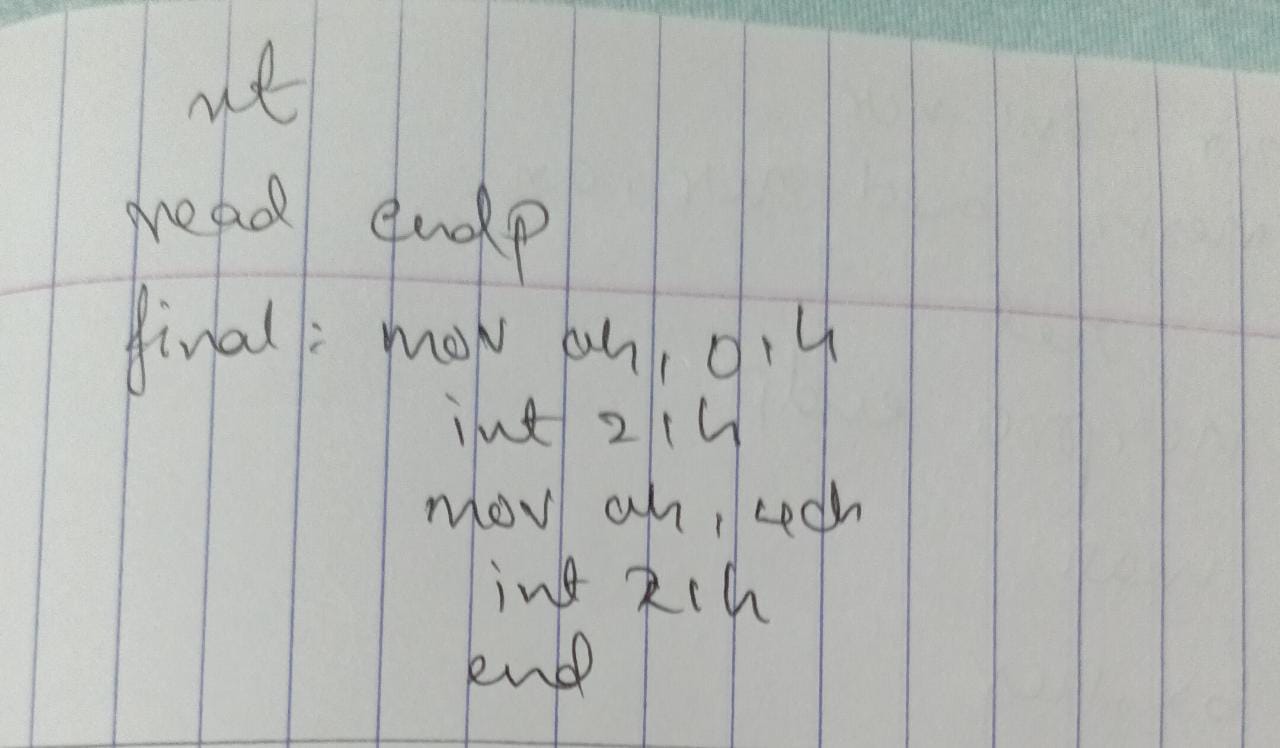 ret
read endp
final: mov ah, 01h
int 21h
mov ah, 4ch
int 21h
end